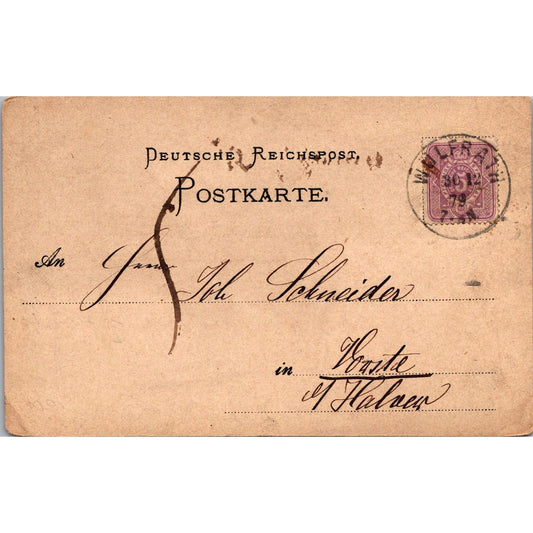 DEUTSCHE REICHSPOST.
POSTKARTE.
WÜLFRATH
30 12
79
7-8N
An Herrn Joh Schneider
in Vorste
b/ Halver